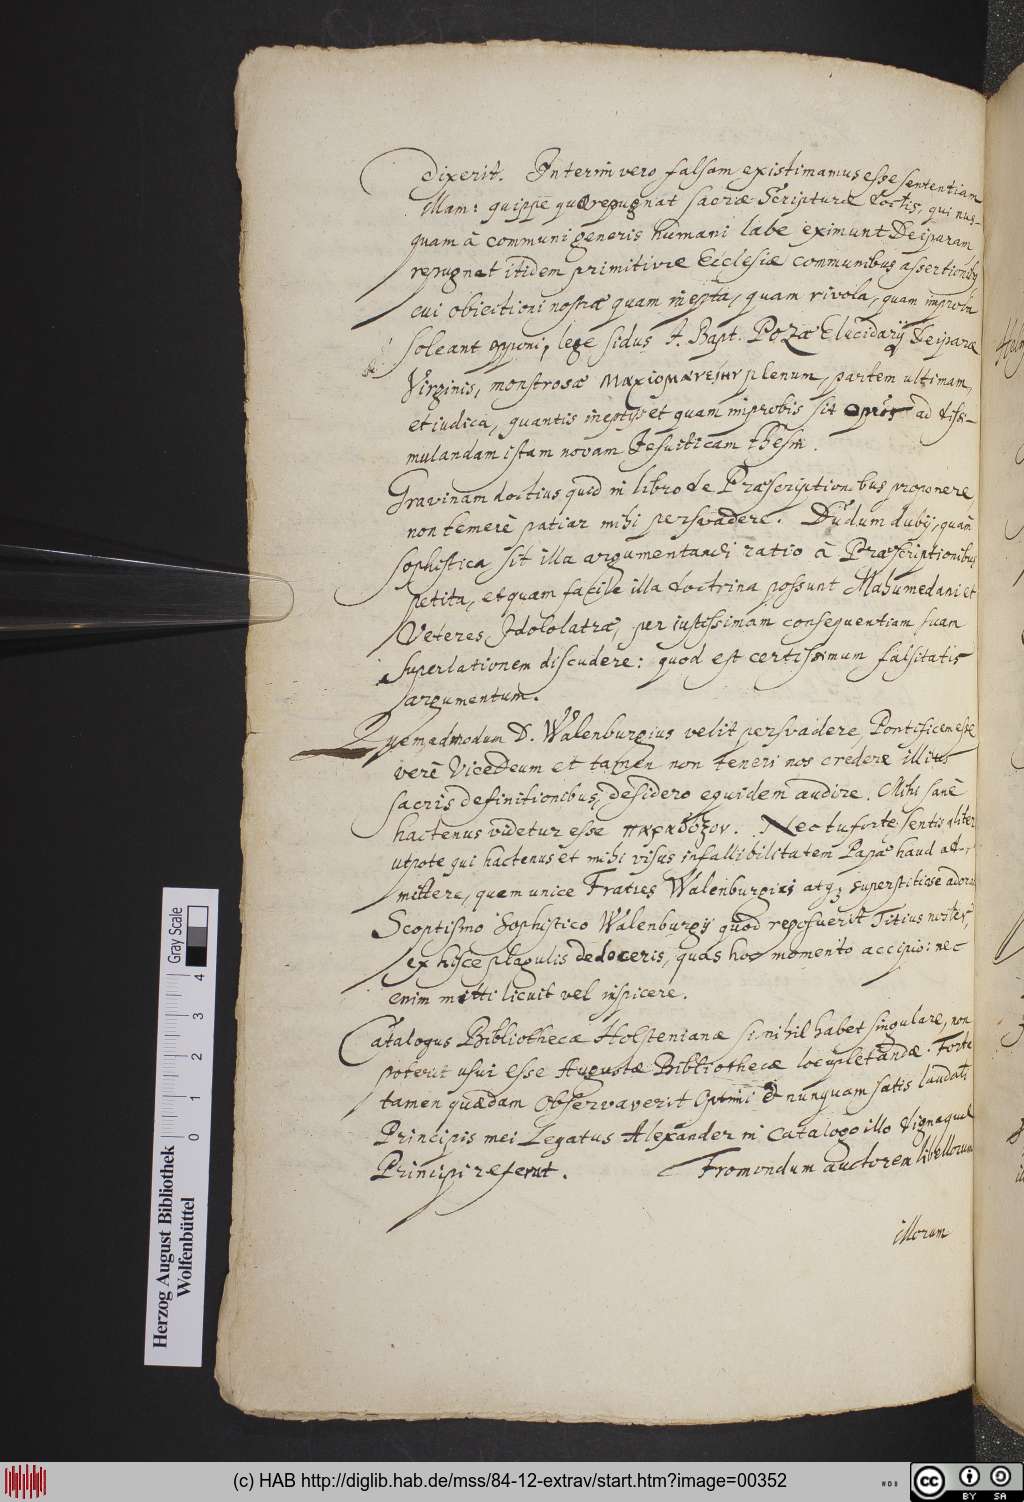 dixerit. Interim vero falsam existimamus esse sententiam
illam: quippe quæ repugnat sacræ Scripturæ locis, qui nus-
quam à communi generis humani labe eximunt Deiparam
repugnat itidem primitivæ Ecclesiæ communibus assertionibus
cui obiectioni nostræ quam inepta, quam frivola, quam improba
soleant opponi, lege sidus I. Bapt. Pozæ Elucidarij Deiparæ
Virginis, monstrosæ plenum, partem ultimam,
et iudica, quantis ineptijs et quam improbis sit opus ad dissi-
mulandam istam novam Iesuiticam thesin.
Gravinam doctius quid in libro de Præscriptionibus proponere,
non temerè patiar mihi persvadere. Dudum dubij, quàm
sophistica sit illa argumentandi ratio à Præscriptionibus
petita, et quàm facile illa doctrina possunt Mahumedani et
Veteres Idololatræ, per iustissimam consequentiam suam
superlationem discudere: quod est certissimum falsitatis
argumentum.
Quemadmodum D. Walenburgius velit persvadere Pontificem esse
verè Vicedeum et tamen non teneri nos credere illius
sacris definitionibus, desidero equidem audire. Mihi sanè
hactenus videtur esse παραδοξον. Nec tu forte sentis aliter
utpote qui hactenus et mihi visus infallibilitatem Papæ haud ad-
mittere, quem unice Fratres Walenburgici atq; superstitiose adorant
Scoptismo Sophistico Walenburgij quod reposuerit Titius noster,
ex hisce plagulis dedoceris, quas hoc momento accipio: nec
enim mitti licuit vel inspicere.
Catalogus Bibliothecæ Holstenianæ si nihil habet singulare, non
poterit usui esse Augustæ Bibliothecæ locupletandæ. Forte
tamen quædam observaverit Optimi et nunquam satis laudati
Principis mei Legatus Alexander in catalogo illo dignaque
Principi referat. Fromondum auctorem libellorum
illorum
Herzog August Bibliothek
Wolfenbüttel
0 1 2 3 4
Gray Scale
(c) HAB http://diglib.hab.de/mss/84-12-extrav/start.htm?image=00352
cc BY SA